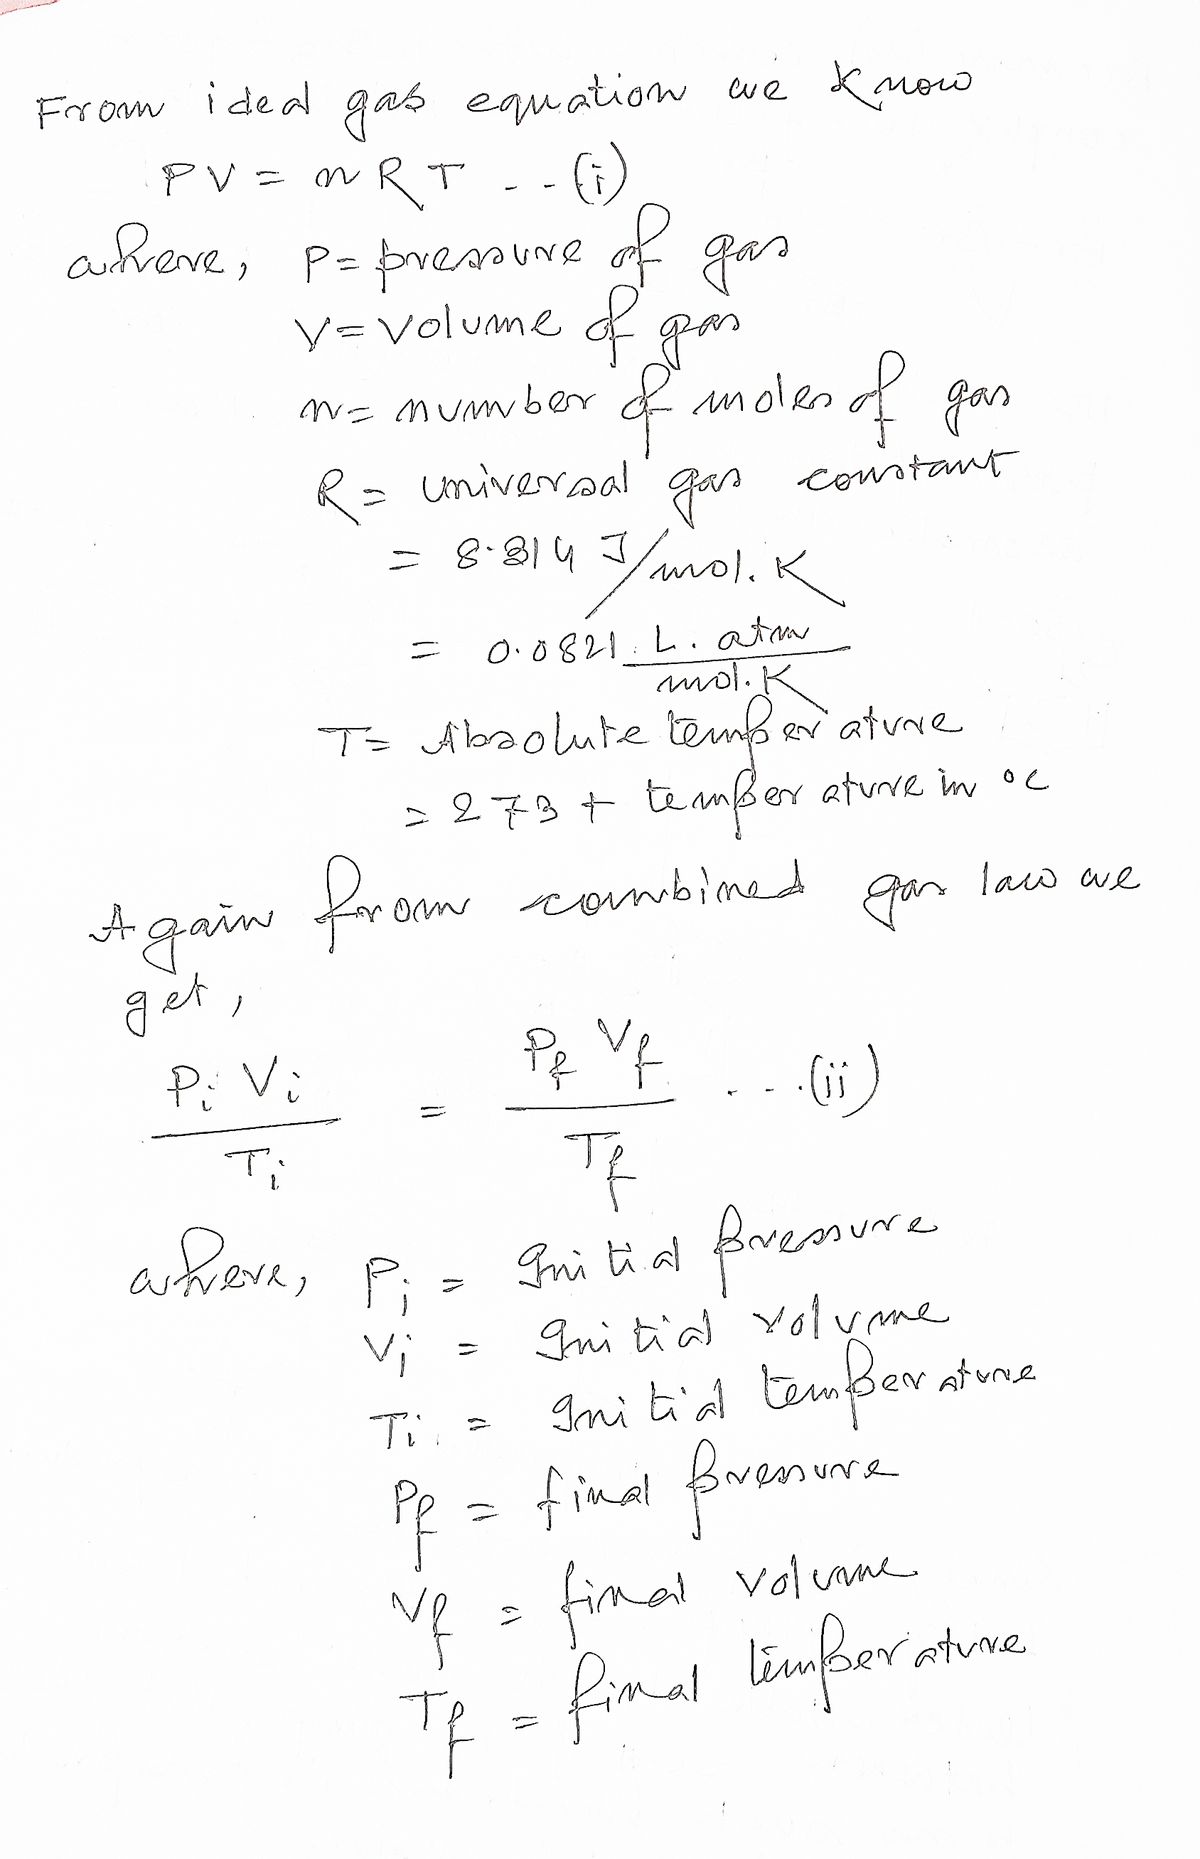 From ideal gas equation we know
PV = nRT ... (i)
where, P = pressure of gas
V = volume of gas
n = number of moles of gas
R = universal gas constant
= 8.314 J/mol.K
= 0.0821 L.atm/mol.K
T = Absolute temperature
= 273 + temperature in °C
Again from combined gas law we
get,
Pi Vi / Ti = Pf Vf / Tf ... (ii)
where, Pi = Initial pressure
Vi = Initial volume
Ti = Initial temperature
Pf = final pressure
Vf = final volume
Tf = final temperature